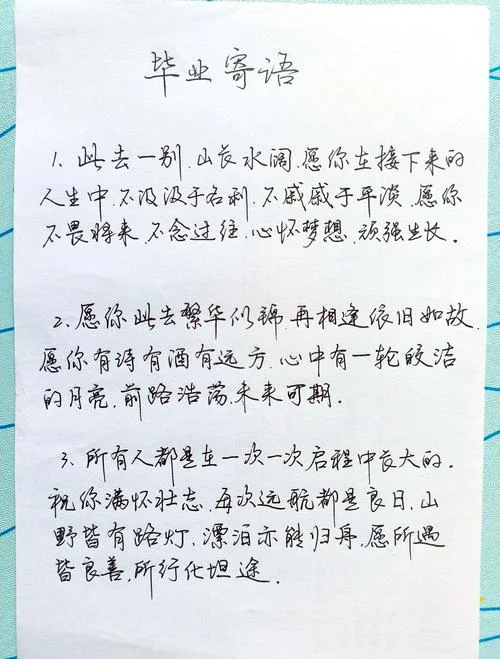 毕业寄语
1. 此去一别.山长水阔.愿你在接下来的
人生中.不汲汲于名利.不戚戚于平淡.愿你
不畏将来.不念过往.心怀梦想.顽强生长。
2. 愿你此去繁华似锦.再相逢依旧如故.
愿你有诗有酒有远方.心中有一轮皎洁
的月亮.前路浩荡.未来可期.
3. 所有人都是在一次一次启程中长大的.
祝你满怀壮志.每次远航都是良日.山
野皆有路灯.漂泊亦能归舟.愿所遇
皆良善.所行化坦途.